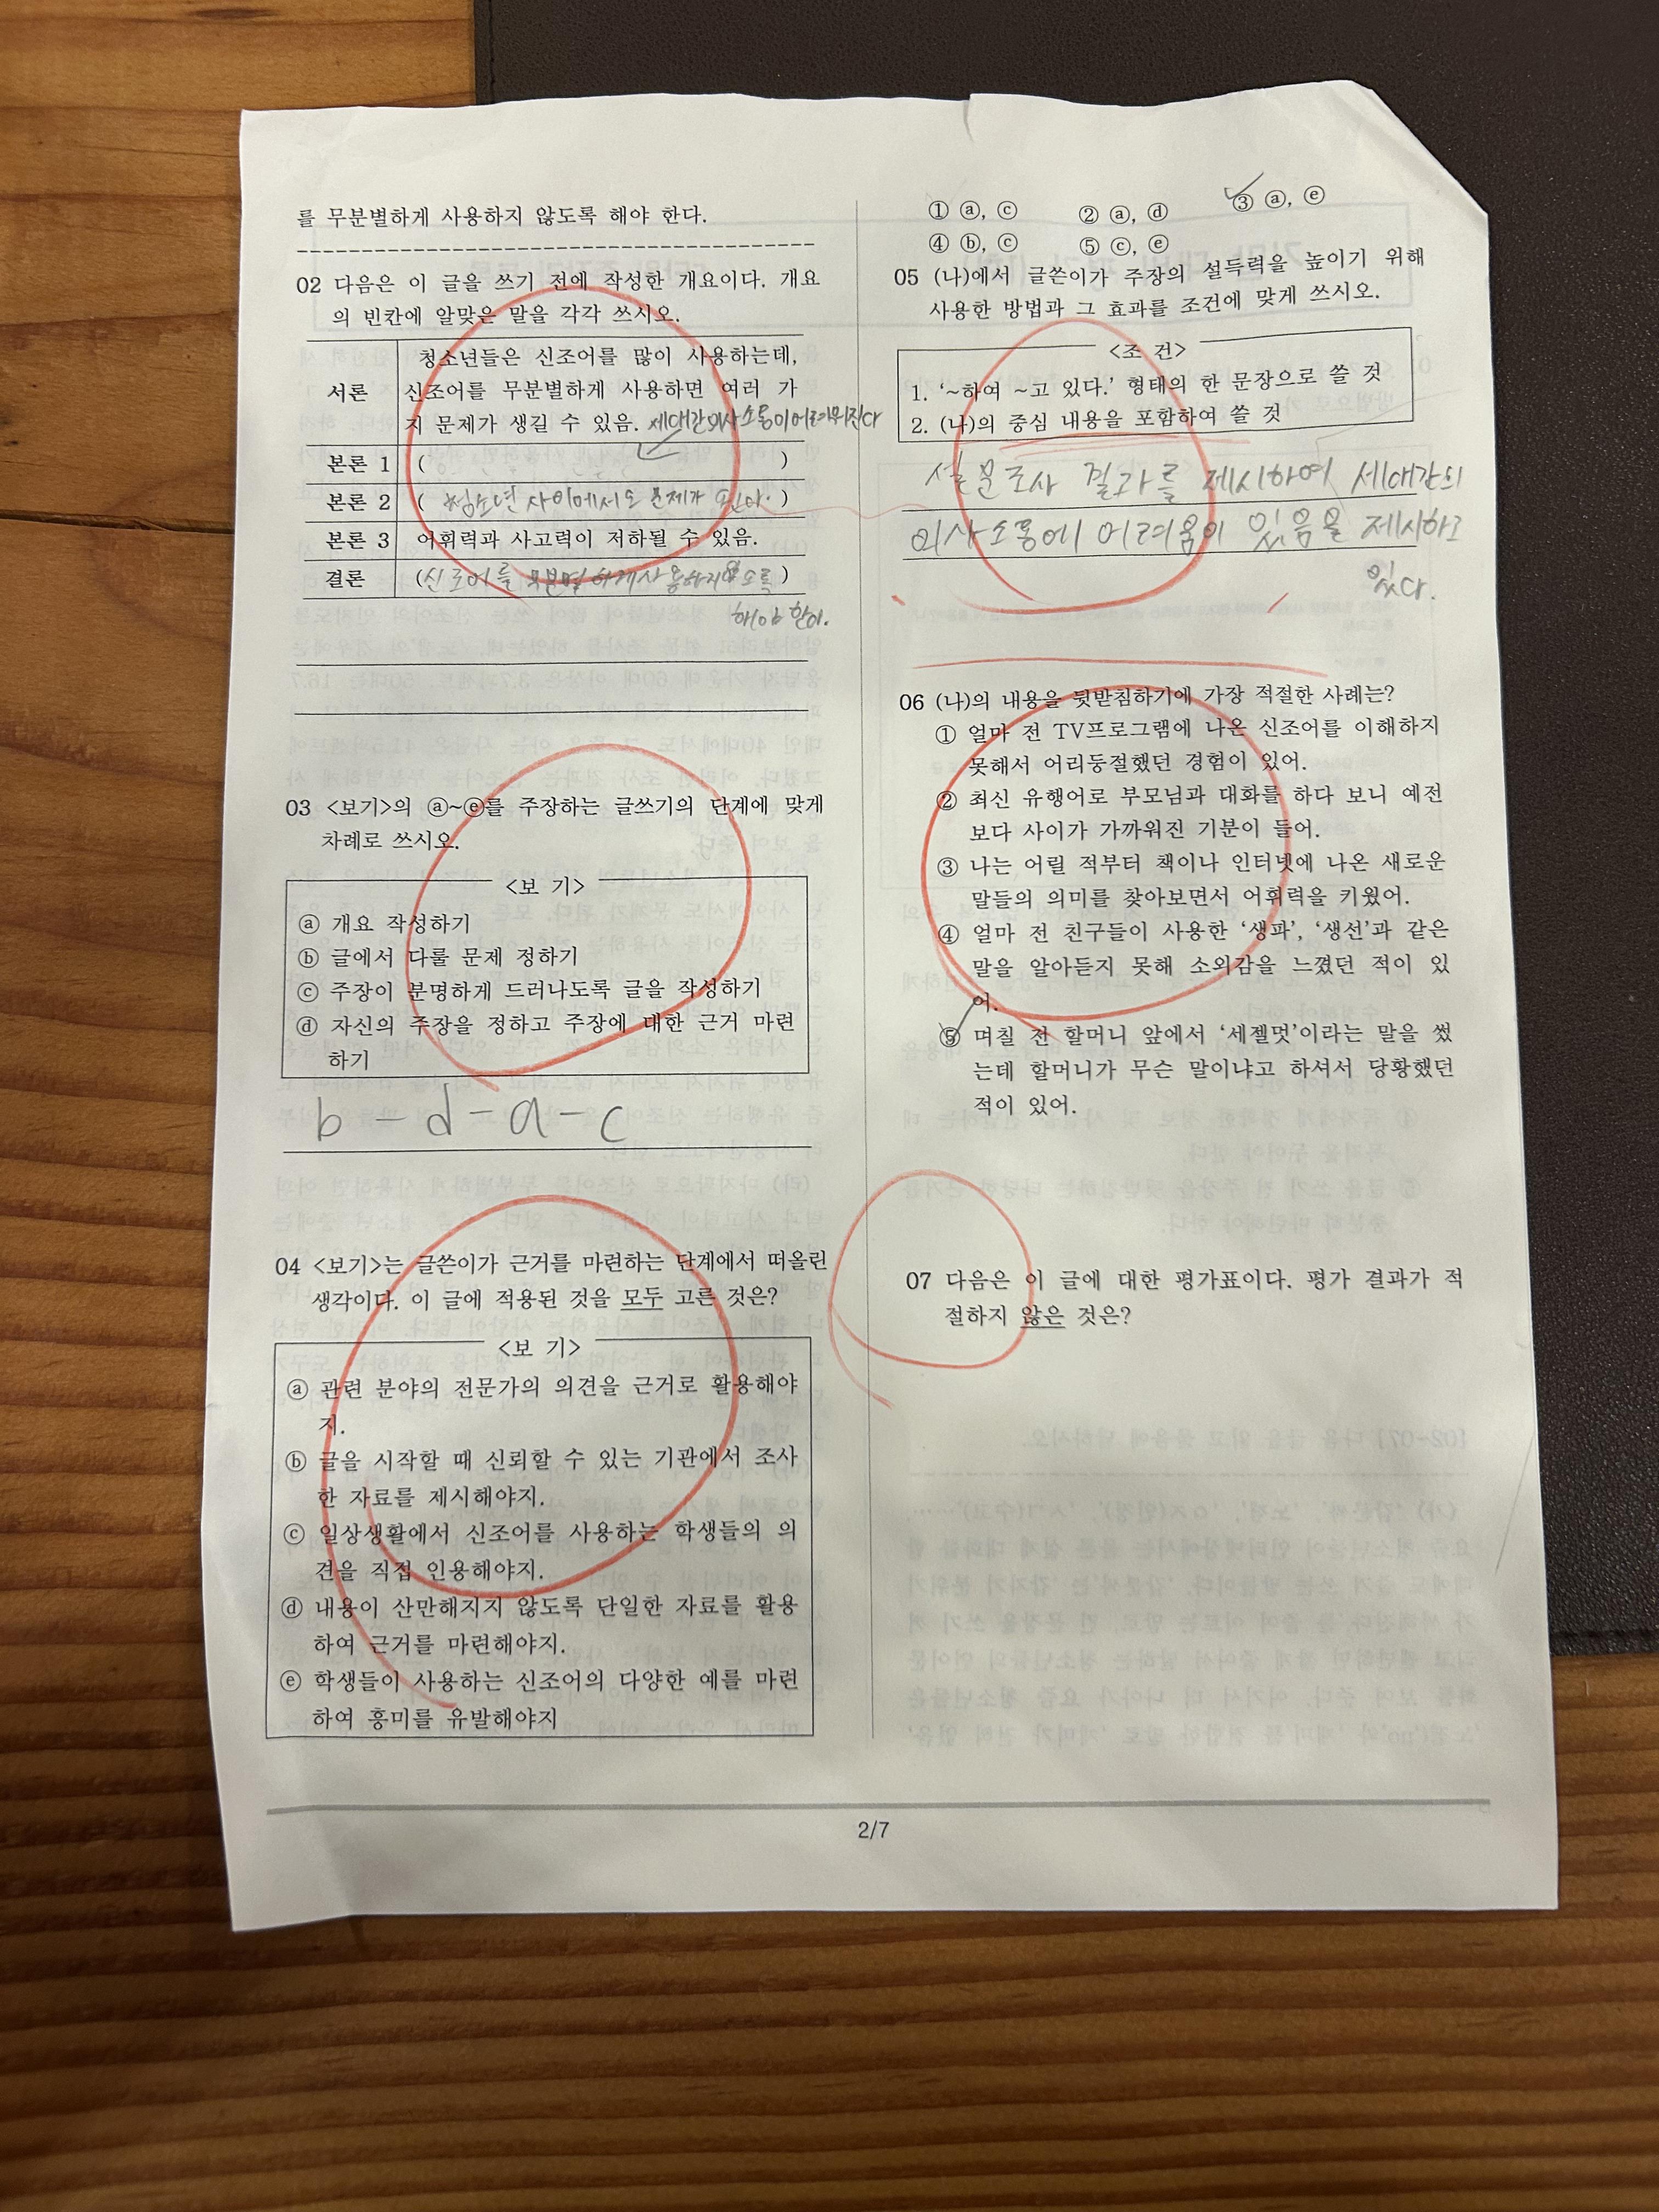 를 무분별하게 사용하지 않도록 해야 한다.
02 다음은 이 글을 쓰기 전에 작성한 개요이다. 개요
의 빈칸에 알맞은 말을 각각 쓰시오.
서론
청소년들은 신조어를 많이 사용하는데,
신조어를 무분별하게 사용하면 여러 가
지 문제가 생길 수 있음. 세대간의사소통이어려워진다
본론 1 ( )
본론 2 ( 청소년 사이에서도 문제가 된다. )
본론 3 어휘력과 사고력이 저하될 수 있음.
결론 (신조어를 무분별하게사용하지않도록 )
해야 한다.
03 <보기>의 ⓐ~ⓔ를 주장하는 글쓰기의 단계에 맞게
차례로 쓰시오.
<보 기>
ⓐ 개요 작성하기
ⓑ 글에서 다룰 문제 정하기
ⓒ 주장이 분명하게 드러나도록 글을 작성하기
ⓓ 자신의 주장을 정하고 주장에 대한 근거 마련
하기
b - d - a - c
04 <보기>는 글쓴이가 근거를 마련하는 단계에서 떠올린
생각이다. 이 글에 적용된 것을 모두 고른 것은?
<보 기>
ⓐ 관련 분야의 전문가의 의견을 근거로 활용해야
지.
ⓑ 글을 시작할 때 신뢰할 수 있는 기관에서 조사
한 자료를 제시해야지.
ⓒ 일상생활에서 신조어를 사용하는 학생들의 의
견을 직접 인용해야지.
ⓓ 내용이 산만해지지 않도록 단일한 자료를 활용
하여 근거를 마련해야지.
ⓔ 학생들이 사용하는 신조어의 다양한 예를 마련
하여 흥미를 유발해야지
① ⓐ, ⓒ ② ⓐ, ⓓ ③ ⓐ, ⓔ
④ ⓑ, ⓒ ⑤ ⓒ, ⓔ
05 (나)에서 글쓴이가 주장의 설득력을 높이기 위해
사용한 방법과 그 효과를 조건에 맞게 쓰시오.
<조 건>
1. ‘~하여 ~고 있다.’ 형태의 한 문장으로 쓸 것
2. (나)의 중심 내용을 포함하여 쓸 것
설문조사 결과를 제시하여 세대간의
의사소통에 어려움이 있음을 제시하고
있다.
06 (나)의 내용을 뒷받침하기에 가장 적절한 사례는?
① 얼마 전 TV프로그램에 나온 신조어를 이해하지
못해서 어리둥절했던 경험이 있어.
② 최신 유행어로 부모님과 대화를 하다 보니 예전
보다 사이가 가까워진 기분이 들어.
③ 나는 어릴 적부터 책이나 인터넷에 나온 새로운
말들의 의미를 찾아보면서 어휘력을 키웠어.
④ 얼마 전 친구들이 사용한 ‘생파’, ‘생선’과 같은
말을 알아듣지 못해 소외감을 느꼈던 적이 있
어.
⑤ 며칠 전 할머니 앞에서 ‘세젤멋’이라는 말을 썼
는데 할머니가 무슨 말이냐고 하셔서 당황했던
적이 있어.
07 다음은 이 글에 대한 평가표이다. 평가 결과가 적
절하지 않은 것은?
2/7